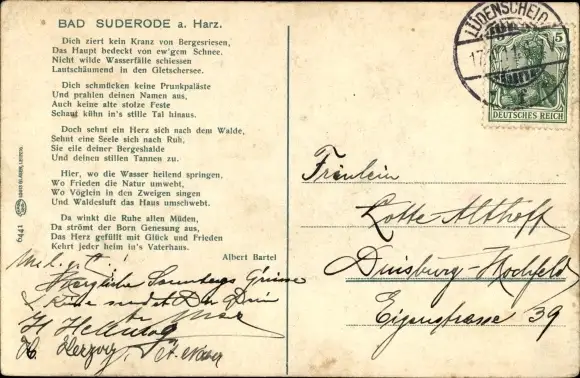 BAD SUDERODE a. Harz.
Dich ziert kein Kranz von Bergesriesen,
Das Haupt bedeckt von ew'gem Schnee.
Nicht wilde Wasserfälle schiessen
Lautschäumend in den Gletschersee.
Dich schmücken keine Prunkpaläste
Und prahlen deinen Namen aus,
Auch keine alte stolze Feste
Schaut kühn in's stille Tal hinaus.
Doch sehnt ein Herz sich nach dem Walde,
Sehnt eine Seele sich nach Ruh,
Sie eile deiner Bergeshalde
Und deinen stillen Tannen zu.
Hier, wo die Wasser heilend springen,
Wo Frieden die Natur umwebt,
Wo Vöglein in den Zweigen singen
Und Waldesluft das Haus umschwebt.
Da winkt die Ruhe allen Müden,
Da strömt der Born Genesung aus,
Das Herz gefüllt mit Glück und Frieden
Kehrt jeder heim in's Vaterhaus.
Albert Bartel
6441
Herzliche Sonntags Grüsse
H. Herzog
LÜDENSCHEID
17
5
DEUTSCHES REICH
Fräulein
Lotte Althoff
Duisburg-Hochfeld
Eigenstrasse 39